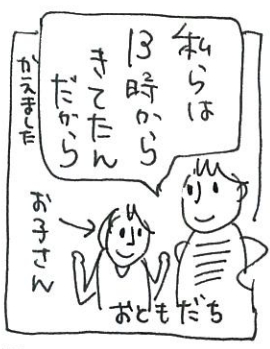 私らは
13時から
きてたん
だから
かえました
お子さん
おともだち